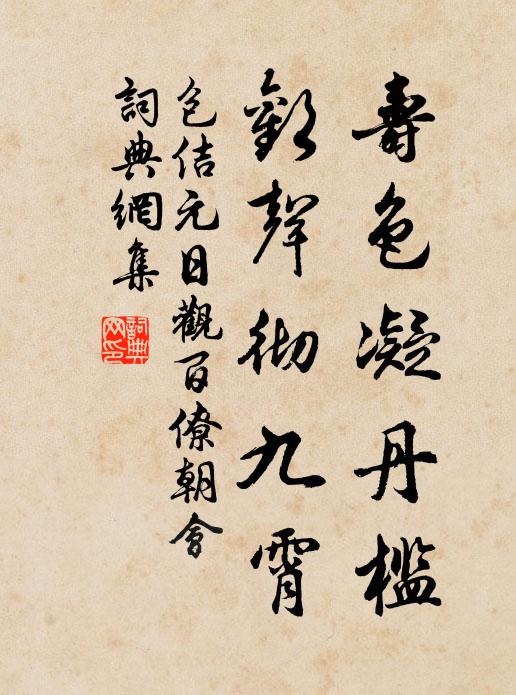 壽色凝丹檻
歡聲彻九霄
包佶元日觀百僚朝會
詞典網集
詞典网印